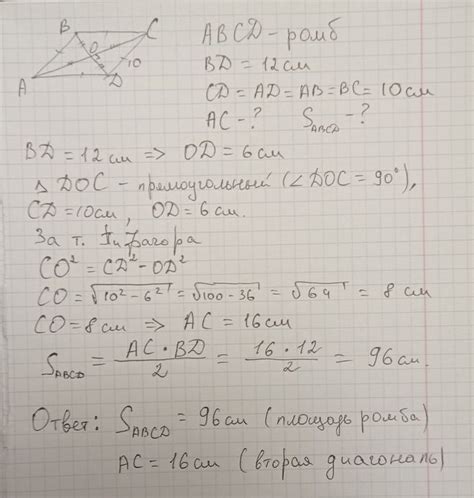 B C
O
10
A D
ABCD - ромб
BD = 12 см
CD = AD = AB = BC = 10 см
AC - ? S_ABCD - ?
BD = 12 см => OD = 6 см
△ DOC - прямоугольный (∠DOC = 90°),
CD = 10 см, OD = 6 см.
За т. Пифагора
CO² = CD² - OD²
CO = √10² - 6² = √100 - 36 = √64 = 8 см
CO = 8 см => AC = 16 см
S_ABCD = AC · BD / 2 = 16 · 12 / 2 = 96 см.
Ответ: S_ABCD = 96 см (площадь ромба)
AC = 16 см (вторая диагональ)